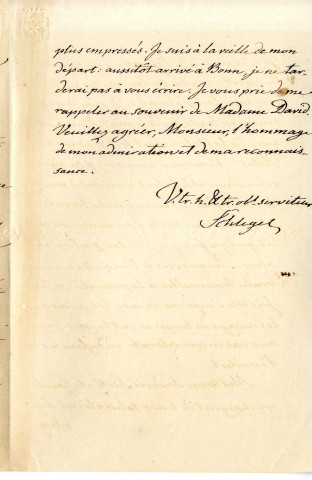 plus empressés. Je suis à la veille de mon
départ: aussitôt arrivé à Bonn, je ne tar
derai pas à vous écrire. Je vous prie de me
rappeler au souvenir de Madame David.
Veuillez agréer, Monsieur, l'hommage
de mon admiration et de ma reconnais
sance.
V. tr. h. & tr. ob. serviteur
Schlegel